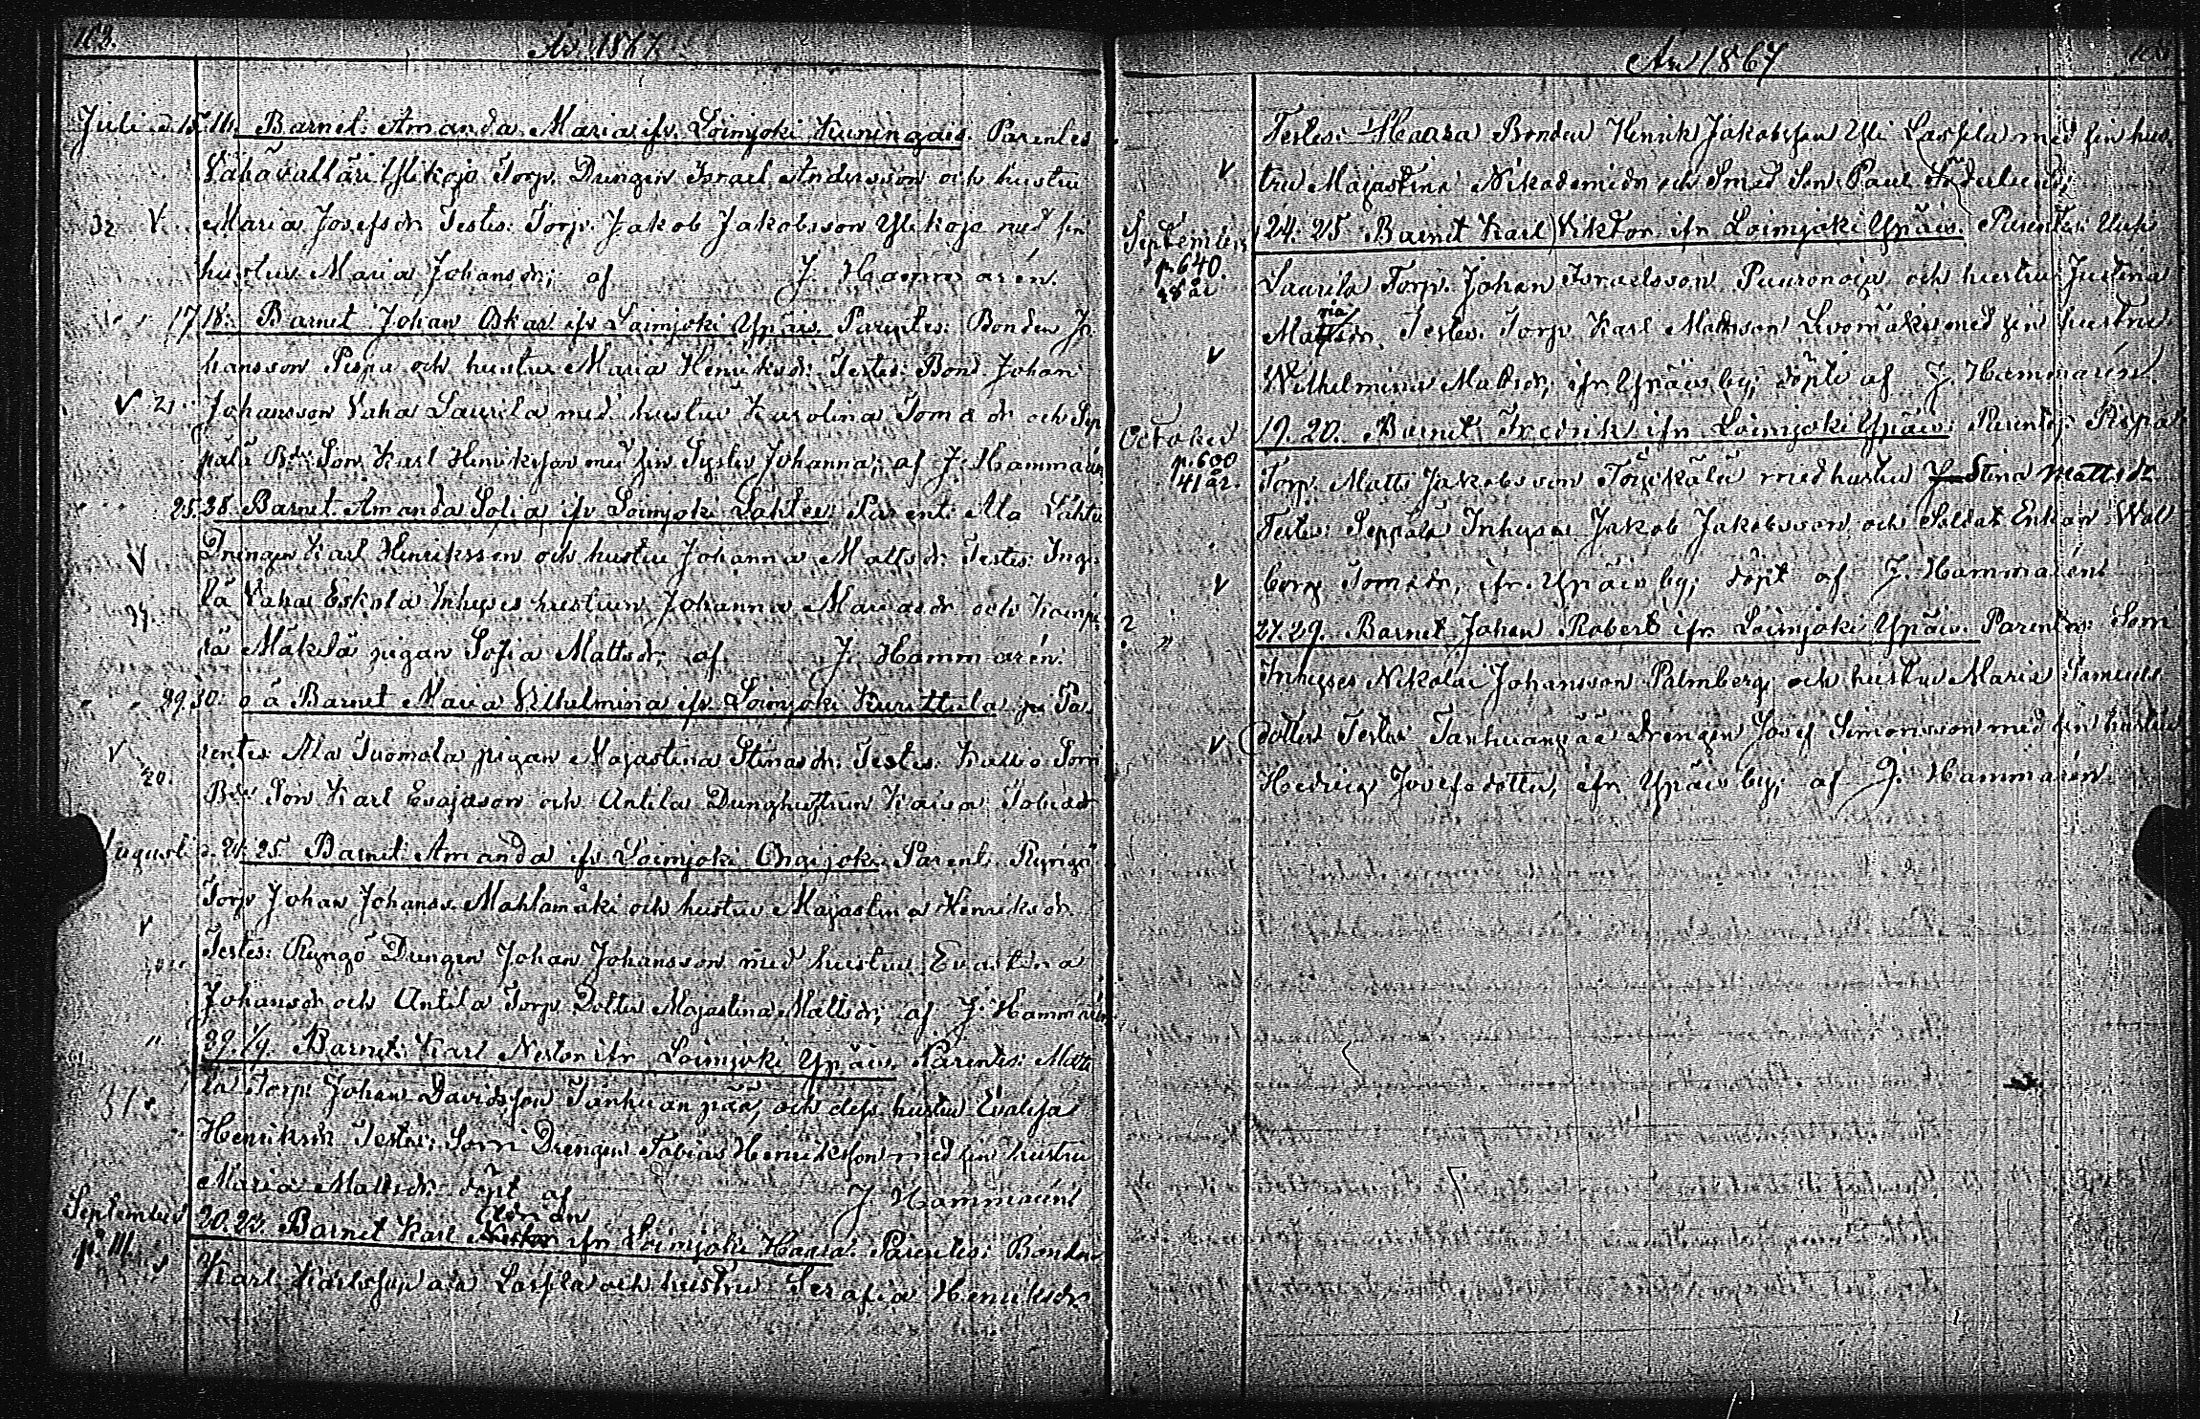 102.
År 1867
Juli d. 15. 16. Barnet: Amanda Maria ifr. Loimjoki Kuningais. Parentes
Vähävalläri Ylikojo Torp. Drengen Israel Andersson och hustru
32 V. Maria Josefsdr Testes: Torp. Jakob Jakobsson Ylikojo med sin
hustru Maria Johansdr; af J. Hammarén.
17 18. Barnet Johan Oskar ifr Loimjoki Ypäis. Parentes: Bonden Jo-
hansson Pispa och hustru Maria Henriksdr. Testes: Bond. Johan
V 21. Johansson Vaha Laurila med hustru Karolina Tomasdr och Sep
pälä Bde Son Karl Henriksson med sin Syster Johanna; af J. Hammarén
25. 28. Barnet Amanda Sofia ifr Loimjoki Lähtee Parent: Ala Lähte
V Drengen Karl Henriksson och hustru Johanna Mattsdr. Testes: Inge-
lä Vaha Eskola Inhyses hustrun Johanna Mariasdr och
Mäkilä pigan Sofia Mattsdr; af J. Hammarén.
29. 30. o ä Barnet Maria Wilhelmina ifr Loimjoki Kurittula Pa-
V rentes Ala Tuomola pigan Majastina Stinasdr. Testes:
20. Bde Son Karl Esajason och Antila Drenghustrun Kaisa
Augusti d. 24. 25 Barnet Amanda ifr Loimjoki Onzijoki. Parent: Ryngö
Torp Johan Johanss. Mahlamäki och hustru Majastina Henriksdr.
V Testes: Ryngö Drengen Johan Johansson med hustru Evastina
Johansdr och Antila Torp. Dotter Majastina Mattsdr; af J. Hammarén
" 29. 1/9. Barnet: Karl Nestor ifr Loimjoki Ypäis. Parentes: Matti
la Torp. Johan Davidsson Tanhuanpää, och dess hustru Evalisa
Henriksdr Testes: Sorri Drengen Tobias Henriksson med sin hustru
Maria Mattsdr döpt af J. Hammarén
September 20. 22. Barnet Karl Nestor ifr Loimjoki Haara. Parentes: Bonden
p. 111. V Karl Karlsson Lassila och hustru Serafia Henriksdr.
År 1867
Testes: Haara Bonden Henrik Jakobsson Yli Lassila med sin hus-
V tru Majastina Nikodemidr och Smed Son Paul Söderlund;
September 24. 25 Barnet Karl Viktor ifr Loimjoki Ypäis. Parentes: Uusi
p. 640. 28 år Laurila Torp. Johan Israelsson Puuronoja och hustru Justina
Mattsdr. Testes. Torp Karl Mattsson Livomäki med sin hustru
V Wilhelmina Mattsdr, ifr Ypäis by; döpt af J. Hammarén.
October 19. 20. Barnet Fredrik ifr. Loimjoki Ypäis: Parentes: Pispa
p. 600 41 år. Torp. Matts Jakobsson med hustru Stina Mattsdr
Testes: Seppälä Inhyses Jakob Jakobsson och Soldat Enkan Wall
V borg Tomasdr, ifr. Ypäis by; döpt af J. Hammarén
? " 27. 29. Barnet Johan Robert ifr. Loimjoki Ypäis. Parentes: Sorri
Inhyses Nikolai Johansson Palmberg och hustru Maria Samuels
V dotter Testes Tanhuanpää Drengen Josef Simonsson med sin hustru
Hedvig Josefsdotter, ifr Ypäis by; af J. Hammarén